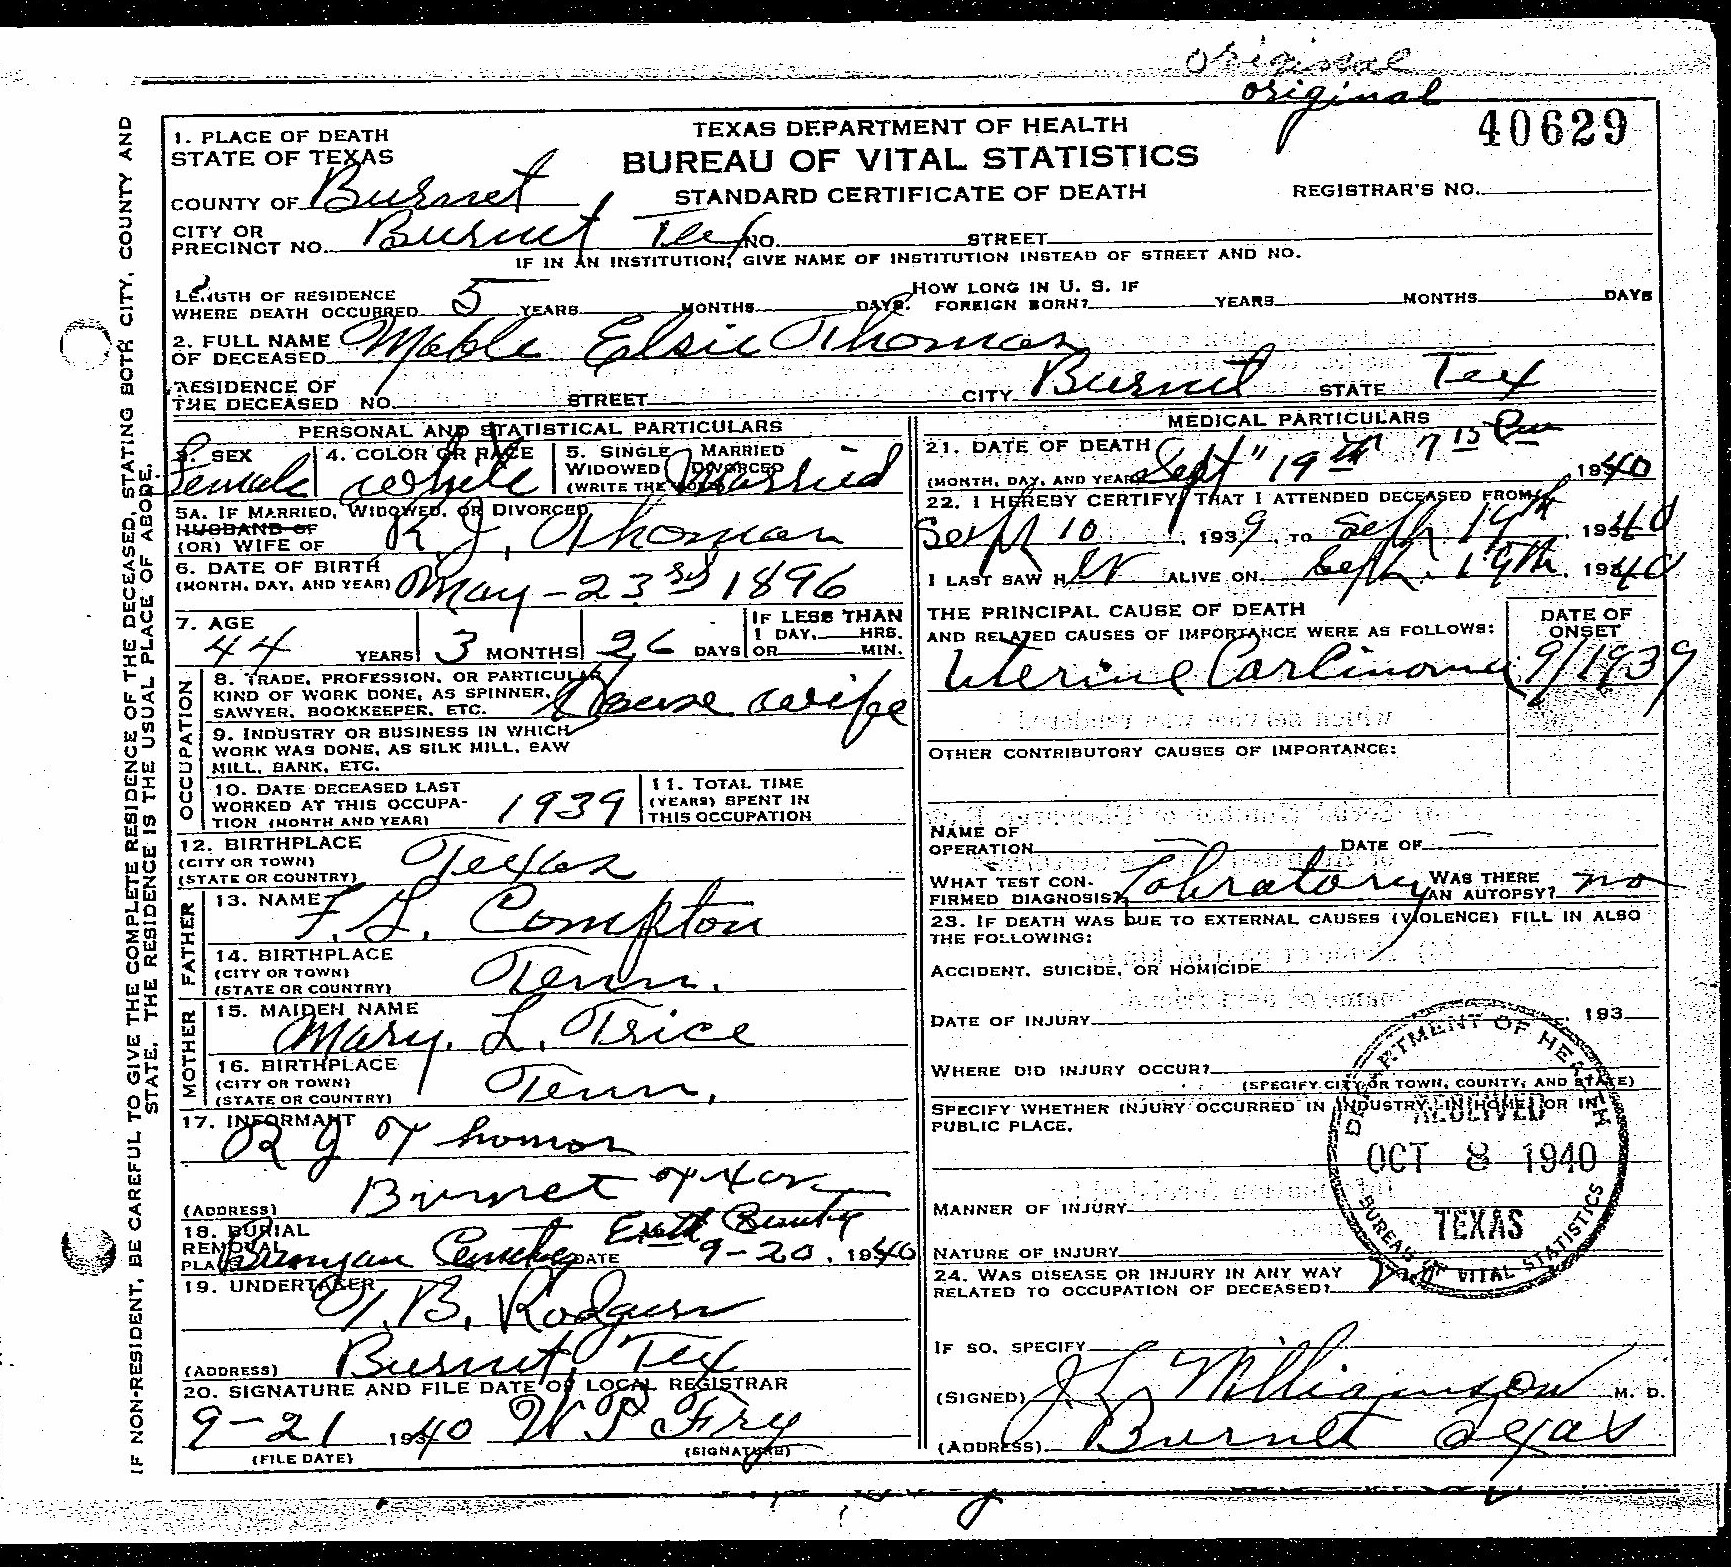 original
original
40629
TEXAS DEPARTMENT OF HEALTH
BUREAU OF VITAL STATISTICS
STANDARD CERTIFICATE OF DEATH
REGISTRAR'S NO.
1. PLACE OF DEATH
STATE OF TEXAS
COUNTY OF Burnet
CITY OR
PRECINCT NO. Burnet Tex NO. STREET
IF IN AN INSTITUTION, GIVE NAME OF INSTITUTION INSTEAD OF STREET AND NO.
LENGTH OF RESIDENCE
WHERE DEATH OCCURRED 5 YEARS MONTHS DAYS.
HOW LONG IN U. S. IF
FOREIGN BORN? YEARS MONTHS DAYS
2. FULL NAME
OF DECEASED Mable Elsie Thomas
RESIDENCE OF
THE DECEASED NO. STREET CITY Burnet STATE Tex
PERSONAL AND STATISTICAL PARTICULARS
3. SEX Female
4. COLOR OR RACE white
5. SINGLE MARRIED
WIDOWED DIVORCED
(WRITE THE WORD) Married
5A. IF MARRIED, WIDOWED, OR DIVORCED,
HUSBAND OF
(OR) WIFE OF R. J. Thomas
6. DATE OF BIRTH
(MONTH, DAY, AND YEAR) May-23rd 1896
7. AGE
44 YEARS 3 MONTHS 26 DAYS
IF LESS THAN
1 DAY, HRS.
OR MIN.
OCCUPATION
8. TRADE, PROFESSION, OR PARTICULAR
KIND OF WORK DONE, AS SPINNER,
SAWYER, BOOKKEEPER, ETC. House wife
9. INDUSTRY OR BUSINESS IN WHICH
WORK WAS DONE, AS SILK MILL, SAW
MILL, BANK, ETC.
10. DATE DECEASED LAST
WORKED AT THIS OCCUPA-
TION (MONTH AND YEAR) 1939
11. TOTAL TIME
(YEARS) SPENT IN
THIS OCCUPATION
12. BIRTHPLACE
(CITY OR TOWN)
(STATE OR COUNTRY) Texas
FATHER
13. NAME F. L. Compton
14. BIRTHPLACE
(CITY OR TOWN)
(STATE OR COUNTRY) Tenn.
MOTHER
15. MAIDEN NAME
Mary. L. Trice
16. BIRTHPLACE
(CITY OR TOWN)
(STATE OR COUNTRY) Tenn.
17. INFORMANT
R J Thomas
(ADDRESS) Burnet Texas
18. BURIAL
REMOVAL
Cemetery DATE 9-20, 1940
19. UNDERTAKER
T. B. Rodgers
(ADDRESS) Burnet, Tex
20. SIGNATURE AND FILE DATE OF LOCAL REGISTRAR
9-21 1940 W P Fry
(FILE DATE) (SIGNATURE)
MEDICAL PARTICULARS
21. DATE OF DEATH
(MONTH, DAY, AND YEAR) Sept 19th 7 15 Pm 1940
22. I HEREBY CERTIFY, THAT I ATTENDED DECEASED FROM
Sept 10, 1939, TO Sept. 19th 1940
I LAST SAW H er ALIVE ON Sept. 19th, 1940
THE PRINCIPAL CAUSE OF DEATH
AND RELATED CAUSES OF IMPORTANCE WERE AS FOLLOWS:
DATE OF
ONSET
Uterine Carcinoma 9/1939
OTHER CONTRIBUTORY CAUSES OF IMPORTANCE:
NAME OF
OPERATION — DATE OF —
WHAT TEST CON-
FIRMED DIAGNOSIS? Lobratory
WAS THERE
AN AUTOPSY? no
23. IF DEATH WAS DUE TO EXTERNAL CAUSES (VIOLENCE) FILL IN ALSO
THE FOLLOWING:
ACCIDENT, SUICIDE, OR HOMICIDE
DATE OF INJURY , 193
WHERE DID INJURY OCCUR?
(SPECIFY CITY OR TOWN, COUNTY, AND STATE)
SPECIFY WHETHER INJURY OCCURRED IN INDUSTRY, IN HOME, OR IN
PUBLIC PLACE.
MANNER OF INJURY
NATURE OF INJURY
24. WAS DISEASE OR INJURY IN ANY WAY
RELATED TO OCCUPATION OF DECEASED? no
IF SO, SPECIFY
(SIGNED) J L Williamson M. D.
(ADDRESS) Burnet Texas
DEPARTMENT OF HEALTH
RECEIVED
OCT 8 1940
TEXAS
BUREAU OF VITAL STATISTICS
IF NON-RESIDENT, BE CAREFUL TO GIVE THE COMPLETE RESIDENCE OF THE DECEASED, STATING BOTH CITY, COUNTY AND
STATE. THE RESIDENCE IS THE USUAL PLACE OF ABODE.